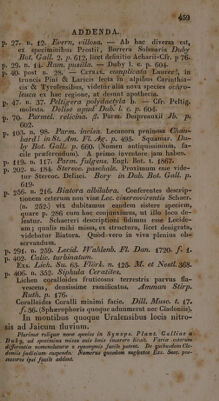 459
ADDENDA.
p. 27. n. 12. Evern. villosa. — Ab hac diversa est,
ex speciminibus Prostii, Borrera Solenaria Duby
Bot. Gall. 2. p. 612, licet definitio Achario-Cfr. p 76.
p. 29. n. 14. Ram. pusilla. — Duby l. c. p. 604.
p. 40. post n. 28. — Cetrar. complicata Laurer!, in
truncis Pini & Laricis lecta in alpibus Carinthia-
cis & Tyrolensibus, videtur alia nova species ochro-
leuca ex hac regione, at desunt apothecia.
p. 47. n. 37. Peltigera polydactyla b. — Cfr. Peltig.
mulesta, Delise apud Dub. l. c. p. 604.
p. 70. Parmel. relicina. β. Parm. Despreauxii Ib. p.
602.
p. 103. n. 98. Parm. inclsa. Lecanora peniosa Chau-
bard! in St. Am. Fl. Ag. p. 495. Squamar. Du-
by Bot. Gall. p. 660. (Nomen antiquissimum, fa-
cile præferendum). A primo inventore jam habeo.
p. 119. n. 117. Parm. fulgens. Engl. Bot. t. 1867.
p. 202. n. 184. Stereoc. paschale. Proximum esse vide-
tur Stereoc. Delisei. Bory in Dub. Bot. Gall. p.
619.
p. 256. n. 216. Biatora albilabra. Conferentes descrip-
tionem ceterum non visæ Lec. cinereovirentis Schær.
(n. 252.) vix dubitamus eandem sistere speciem,
quare p. 286 cum hac conjunximus, ut illo loco de-
leatur. Schæreri descriptioni fidimus esse Lecide-
am; qualis mihi missa, ex structura, licet denigrata,
videbatur Biatora. Quod vero in viva planius ob-
servandum.
p. 294. n. 259. Lecid. Wahlenb. Fl. Dan. 1720. f. 1.
p. 402. Calic. turbinatum.
Exs. Lich. Su. 65. Flörk. n. 125. M. et Nestl. 368.
p. 406. n. 352. Siphula Ceratites.
Lichen coralloides fruticosus terrestris parvus fla-
vescens, densissime ramificatus. Amman Stirp.
Ruth. p. 176.
Coralloides Coralli minimi facie. Dill. Musc. t. 17.
f. 36. (Sphærophoris quoque adnumerat nec Cladoniis).
In montibus quoque Uralensibus locis nitro-
sis ad Jaicum fluvium.
Plurimæ reliquæ novæ species in Synops. Plant. Galliæ a
Duby, ad specimina missa suis locis inserere licuit. Varia ceterum
differentia nomenclaturæ e synonymis facile patent. De quibusdam Cla-
doniis judicium suspendo. Numerus quosdam neglectos Exs. Suec. pos-
sessores ipsi facile addent.